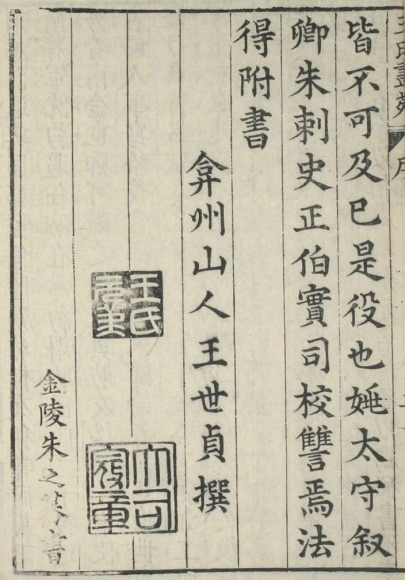 王氏畫苑 序
皆不可及巳是役也姚太守叙
卿朱刺史正伯實司校讐焉法
得附書
弇州山人王世貞撰
王氏
大司
金陵朱之書